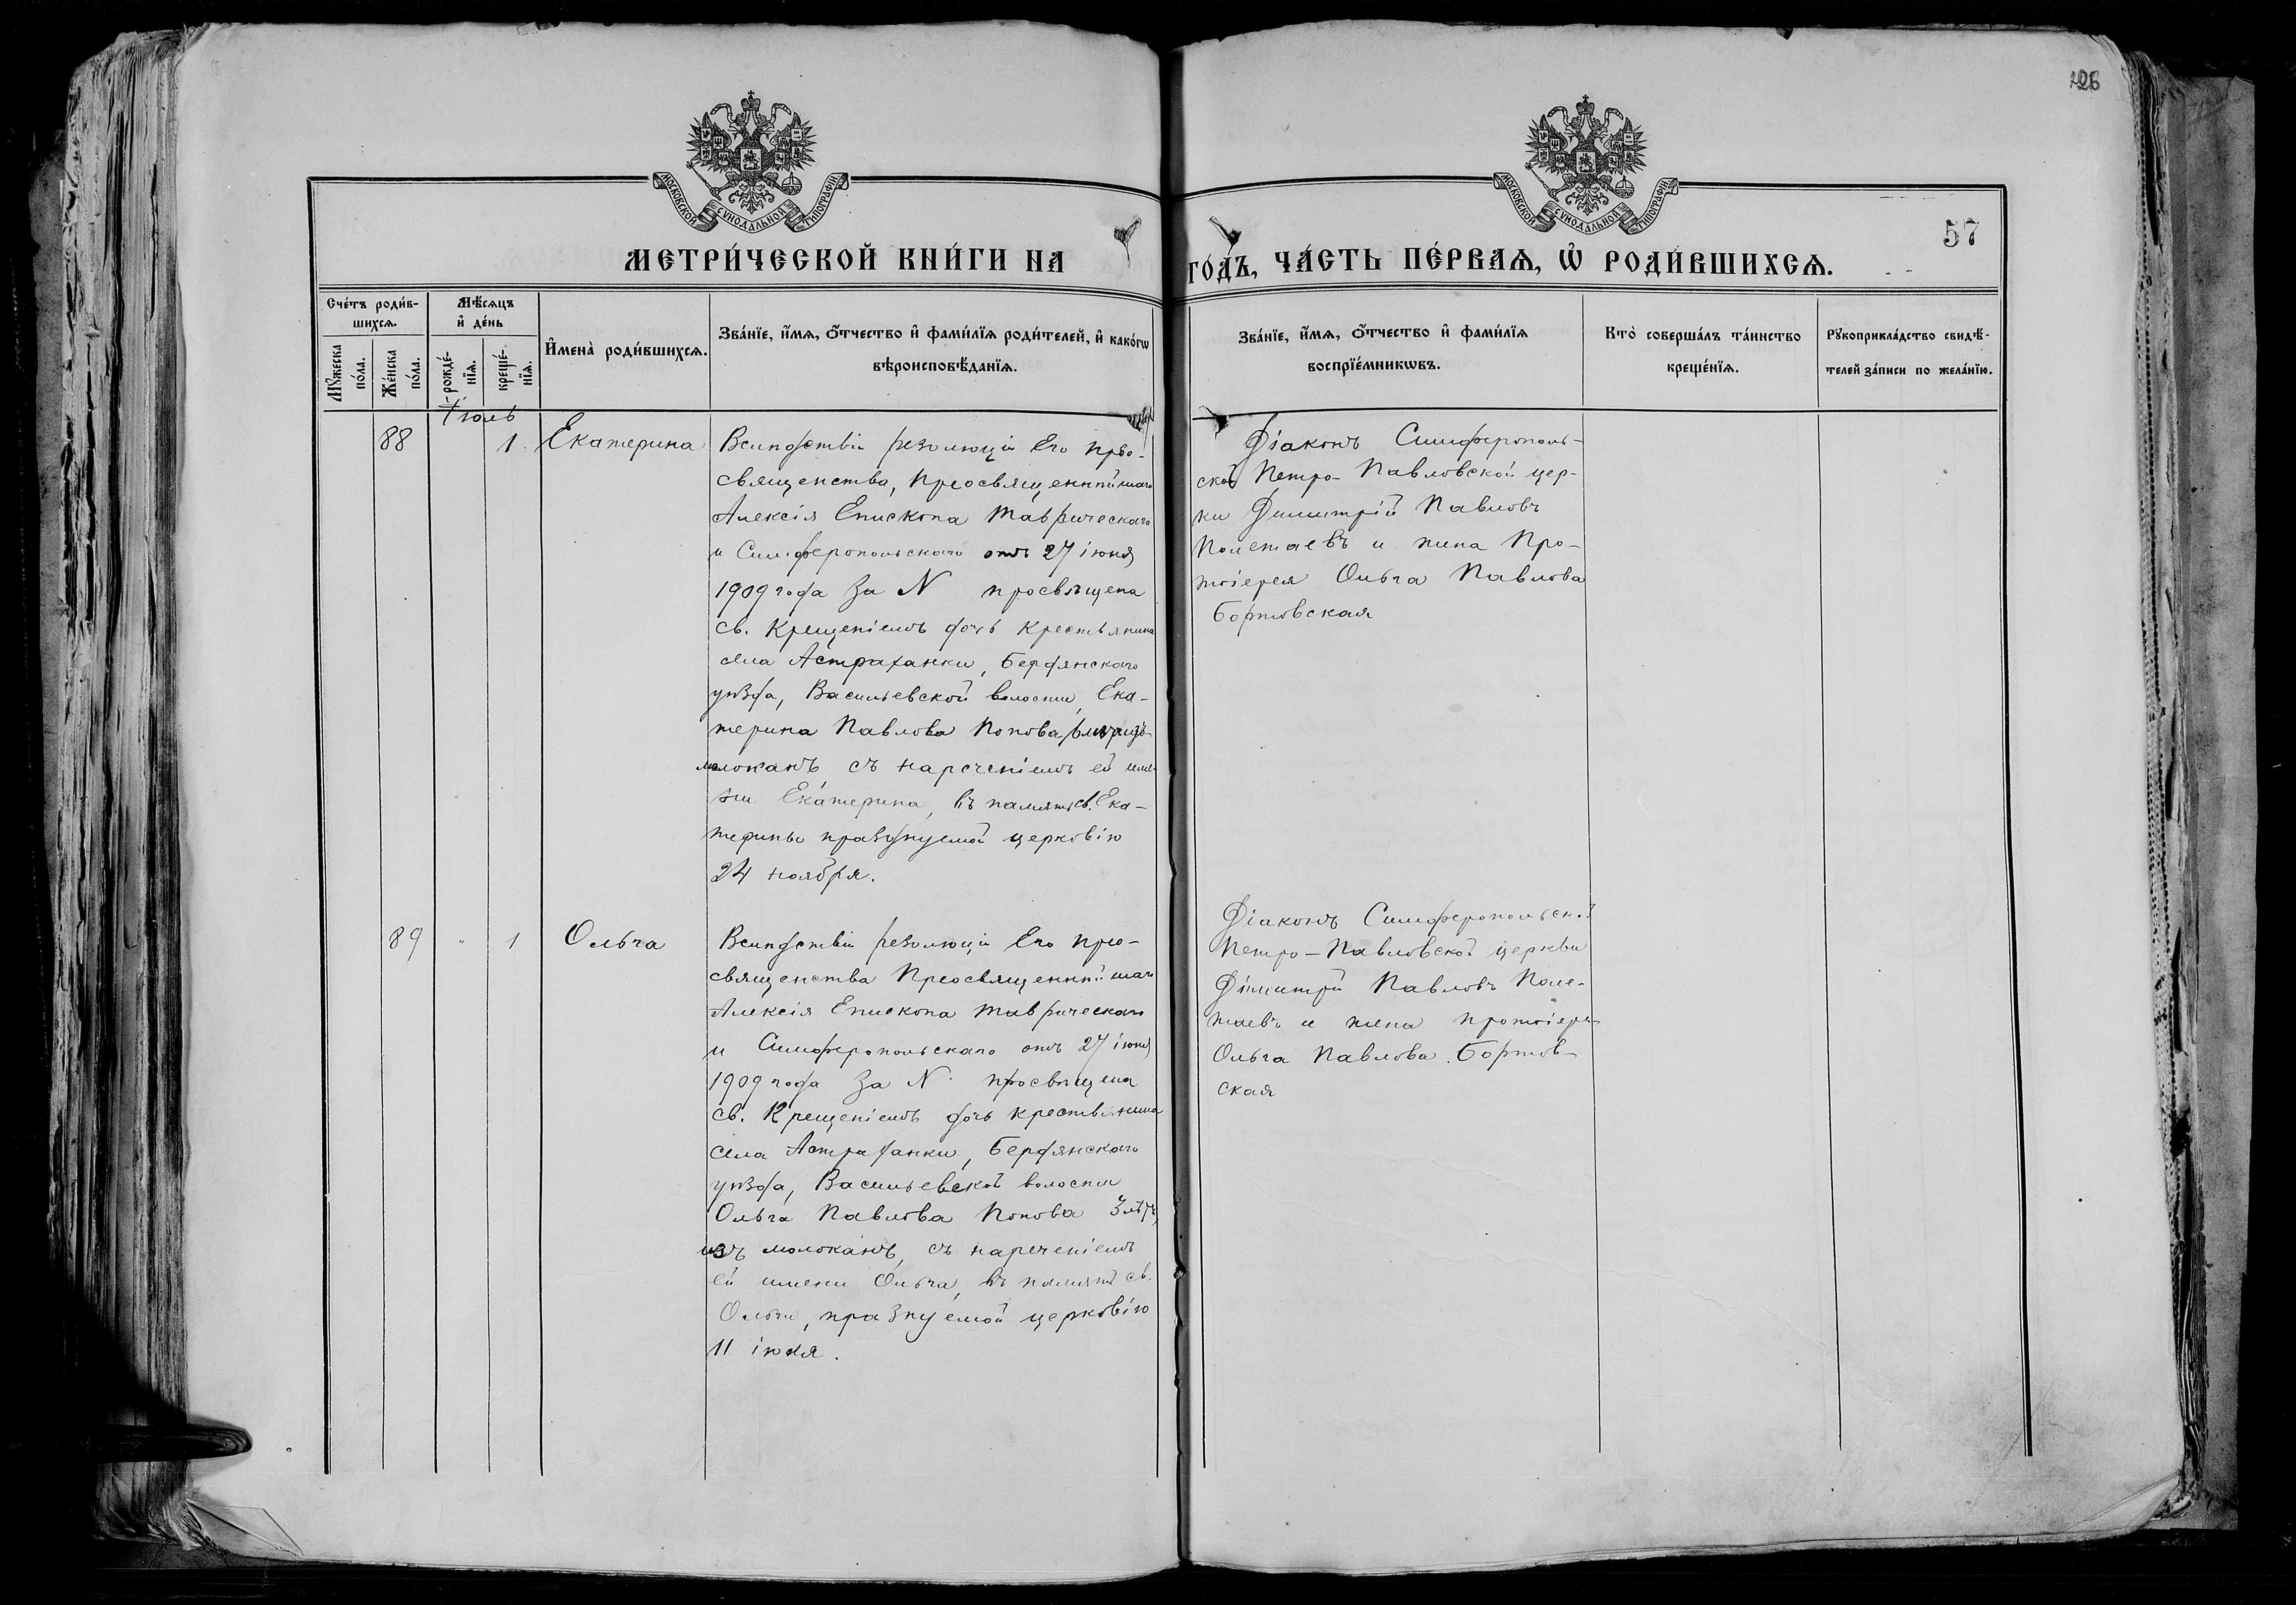 126
МОСКОВСКОЙ СѴНОДАЛЬНОЙ ТИПОГРАФІИ
МОСКОВСКОЙ СѴНОДАЛЬНОЙ ТИПОГРАФІИ
57
МЕТРИ́ЧЕСКОЙ КНИ́ГИ НА
ГО́ДЪ, ЧА́СТЬ ПЕ́РВАѦ, Ѡ҆ РОДИ́ВШИХСѦ.
Сче́тъ роди́в-
шихсѧ.
Мѣ́сѧцъ
и҆ де́нь
Мꙋ́жеска
по́ла.
Же́нска
по́ла.
рожде́-
нїѧ.
креще́-
нїѧ.
И҆мена̀ роди́вшихсѧ.
Зва́нїе, и҆́мѧ, ѻ҆́тчество и҆ фами́лїѧ роди́телей, и҆ како́гѡ
вѣроисповѣ́данїѧ.
Зва́нїе, и҆́мѧ, ѻ҆́тчество и҆ фами́лїѧ
воспрїе́мникѡвъ.
Кто̀ соверша́лъ та́инство
креще́нїѧ.
Рꙋкоприкла́дство свидѣ́-
телей за́писи по жела́нїю.
Іюль
88
1.
Екатерина
Вслѣдствіи резолюціи Его прео-
священства, Преосвященнѣйшаго
Алексія Епископа Таврическаго
и Симферопольскаго отъ 27 іюня
1909 года за N просвѣщена
св. Крещеніемъ дочь крестьянина
села Астраханки, Бердянскаго
уѣзда, Васильевской волости, Ека-
терина Павлова Попова
молоканъ, съ нареченіемъ ей име-
ни Екатерина, въ память св. Ека-
терины празднуемой церковію
24 ноября.
Діаконъ Симферополь-
ской Петро-Павловской цер-
кви Димитрій Павловъ
Полетаевъ и жена Про-
тоіерея Ольга Павлова
Бортовская
89
"
1
Ольга
Вслѣдствіи резолюціи Его прео-
священства Преосвященнѣйшаго
Алексія Епископа Таврическаго
и Симферопольскаго отъ 27 іюня
1909 года за N просвѣщена
св. Крещеніемъ дочь крестьянина
села Астраханки, Бердянскаго
уѣзда, Васильевской волости
Ольга Павлова Попова 3 лѣтъ,
изъ молоканъ, съ нареченіемъ
ей имени Ольга, въ память св.
Ольги, празнуемой церковію
11 іюля.
Діаконъ Симферопольской
Петро-Павловской церкви
Димитрій Павловъ Поле-
таевъ и жена протоіерея
Ольга Павлова Бортов-
ская